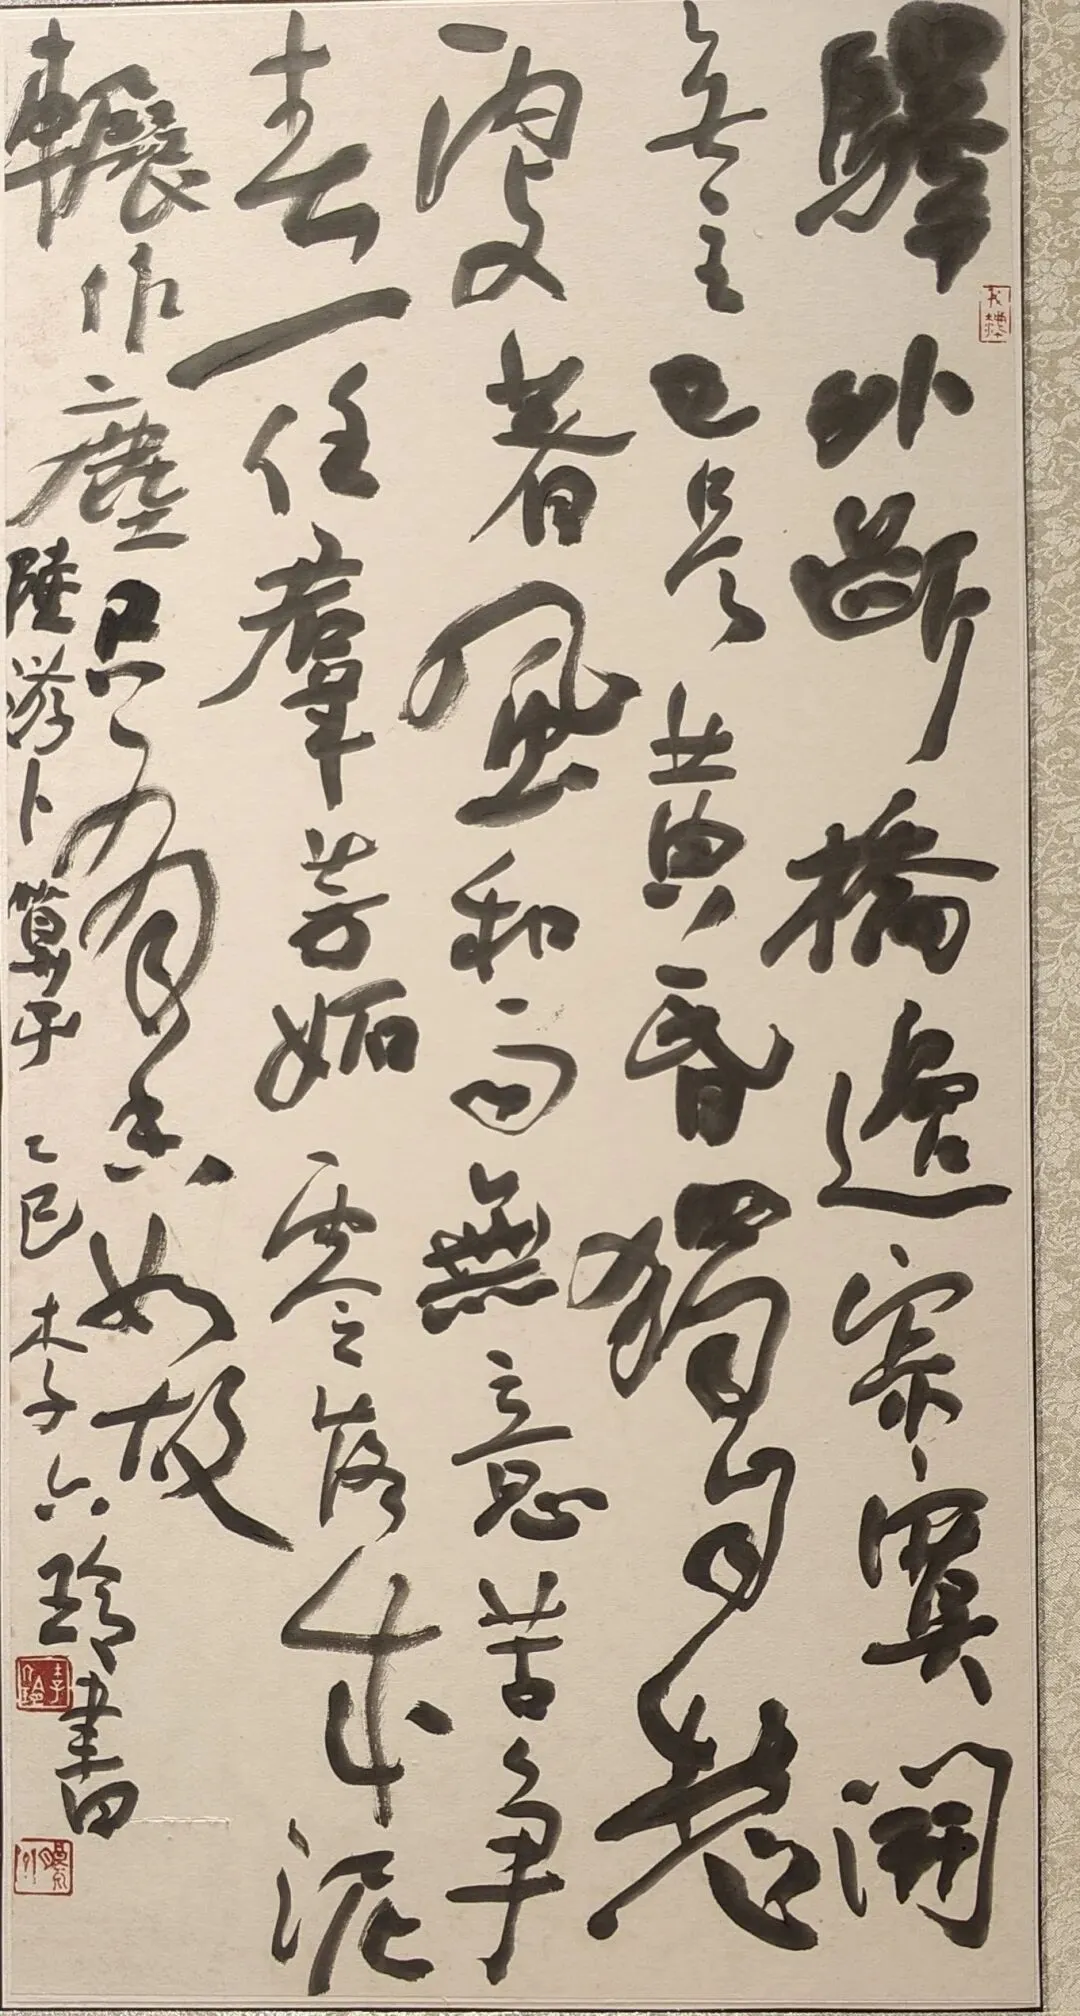 驛外斷橋邊寂寞開
無主已是黃昏獨自愁
更著風和雨無意苦爭
春一任羣芳妬零落成泥
輾作塵只有香如故
陸游卜算子乙巳木子六玲書